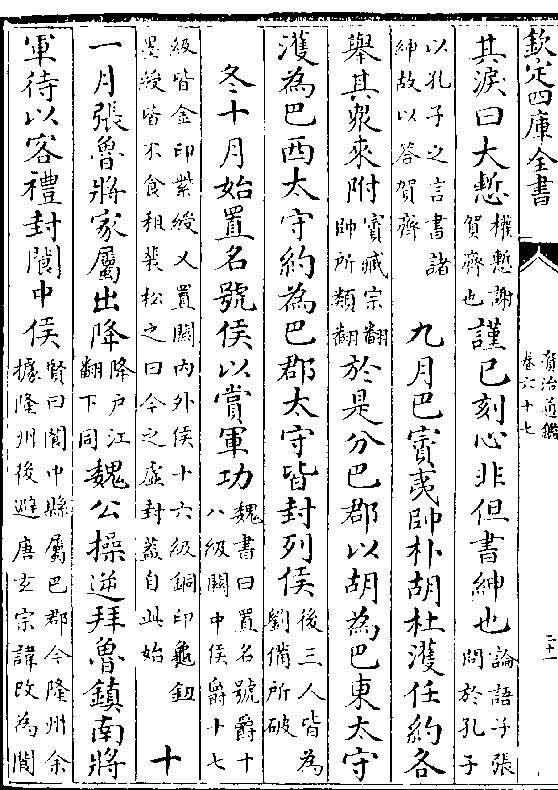 欽定四庫全書
資治通鑑
卷六十七
二十一
其涙曰大慙
權慙謝
賀齊也
謹已刻心非但書紳也
論語子張
問於孔子
以孔子之言書諸
紳故以答賀齊
九月巴賨夷帥朴胡杜濩任約各
舉其衆來附
賨臧宗翻
帥所類翻
於是分巴郡以胡為巴東太守
濩為巴西太守約為巴郡太守皆封列侯
後三人皆為
劉備所破
冬十月始置名號侯以賞軍功
魏書曰置名號爵十
八級關中侯爵十七
級皆金印紫綬又置關内外侯十六級銅印龜鈕
墨綬皆不食租裴松之曰今之虛封蓋自此始
十
一月張魯將家屬出降
降戸江
翻下同
魏公操逆拜魯鎮南將
軍待以客禮封閬中侯
賢曰閬中縣屬巴郡今隆州余
據隆州後避唐玄宗諱改為閬